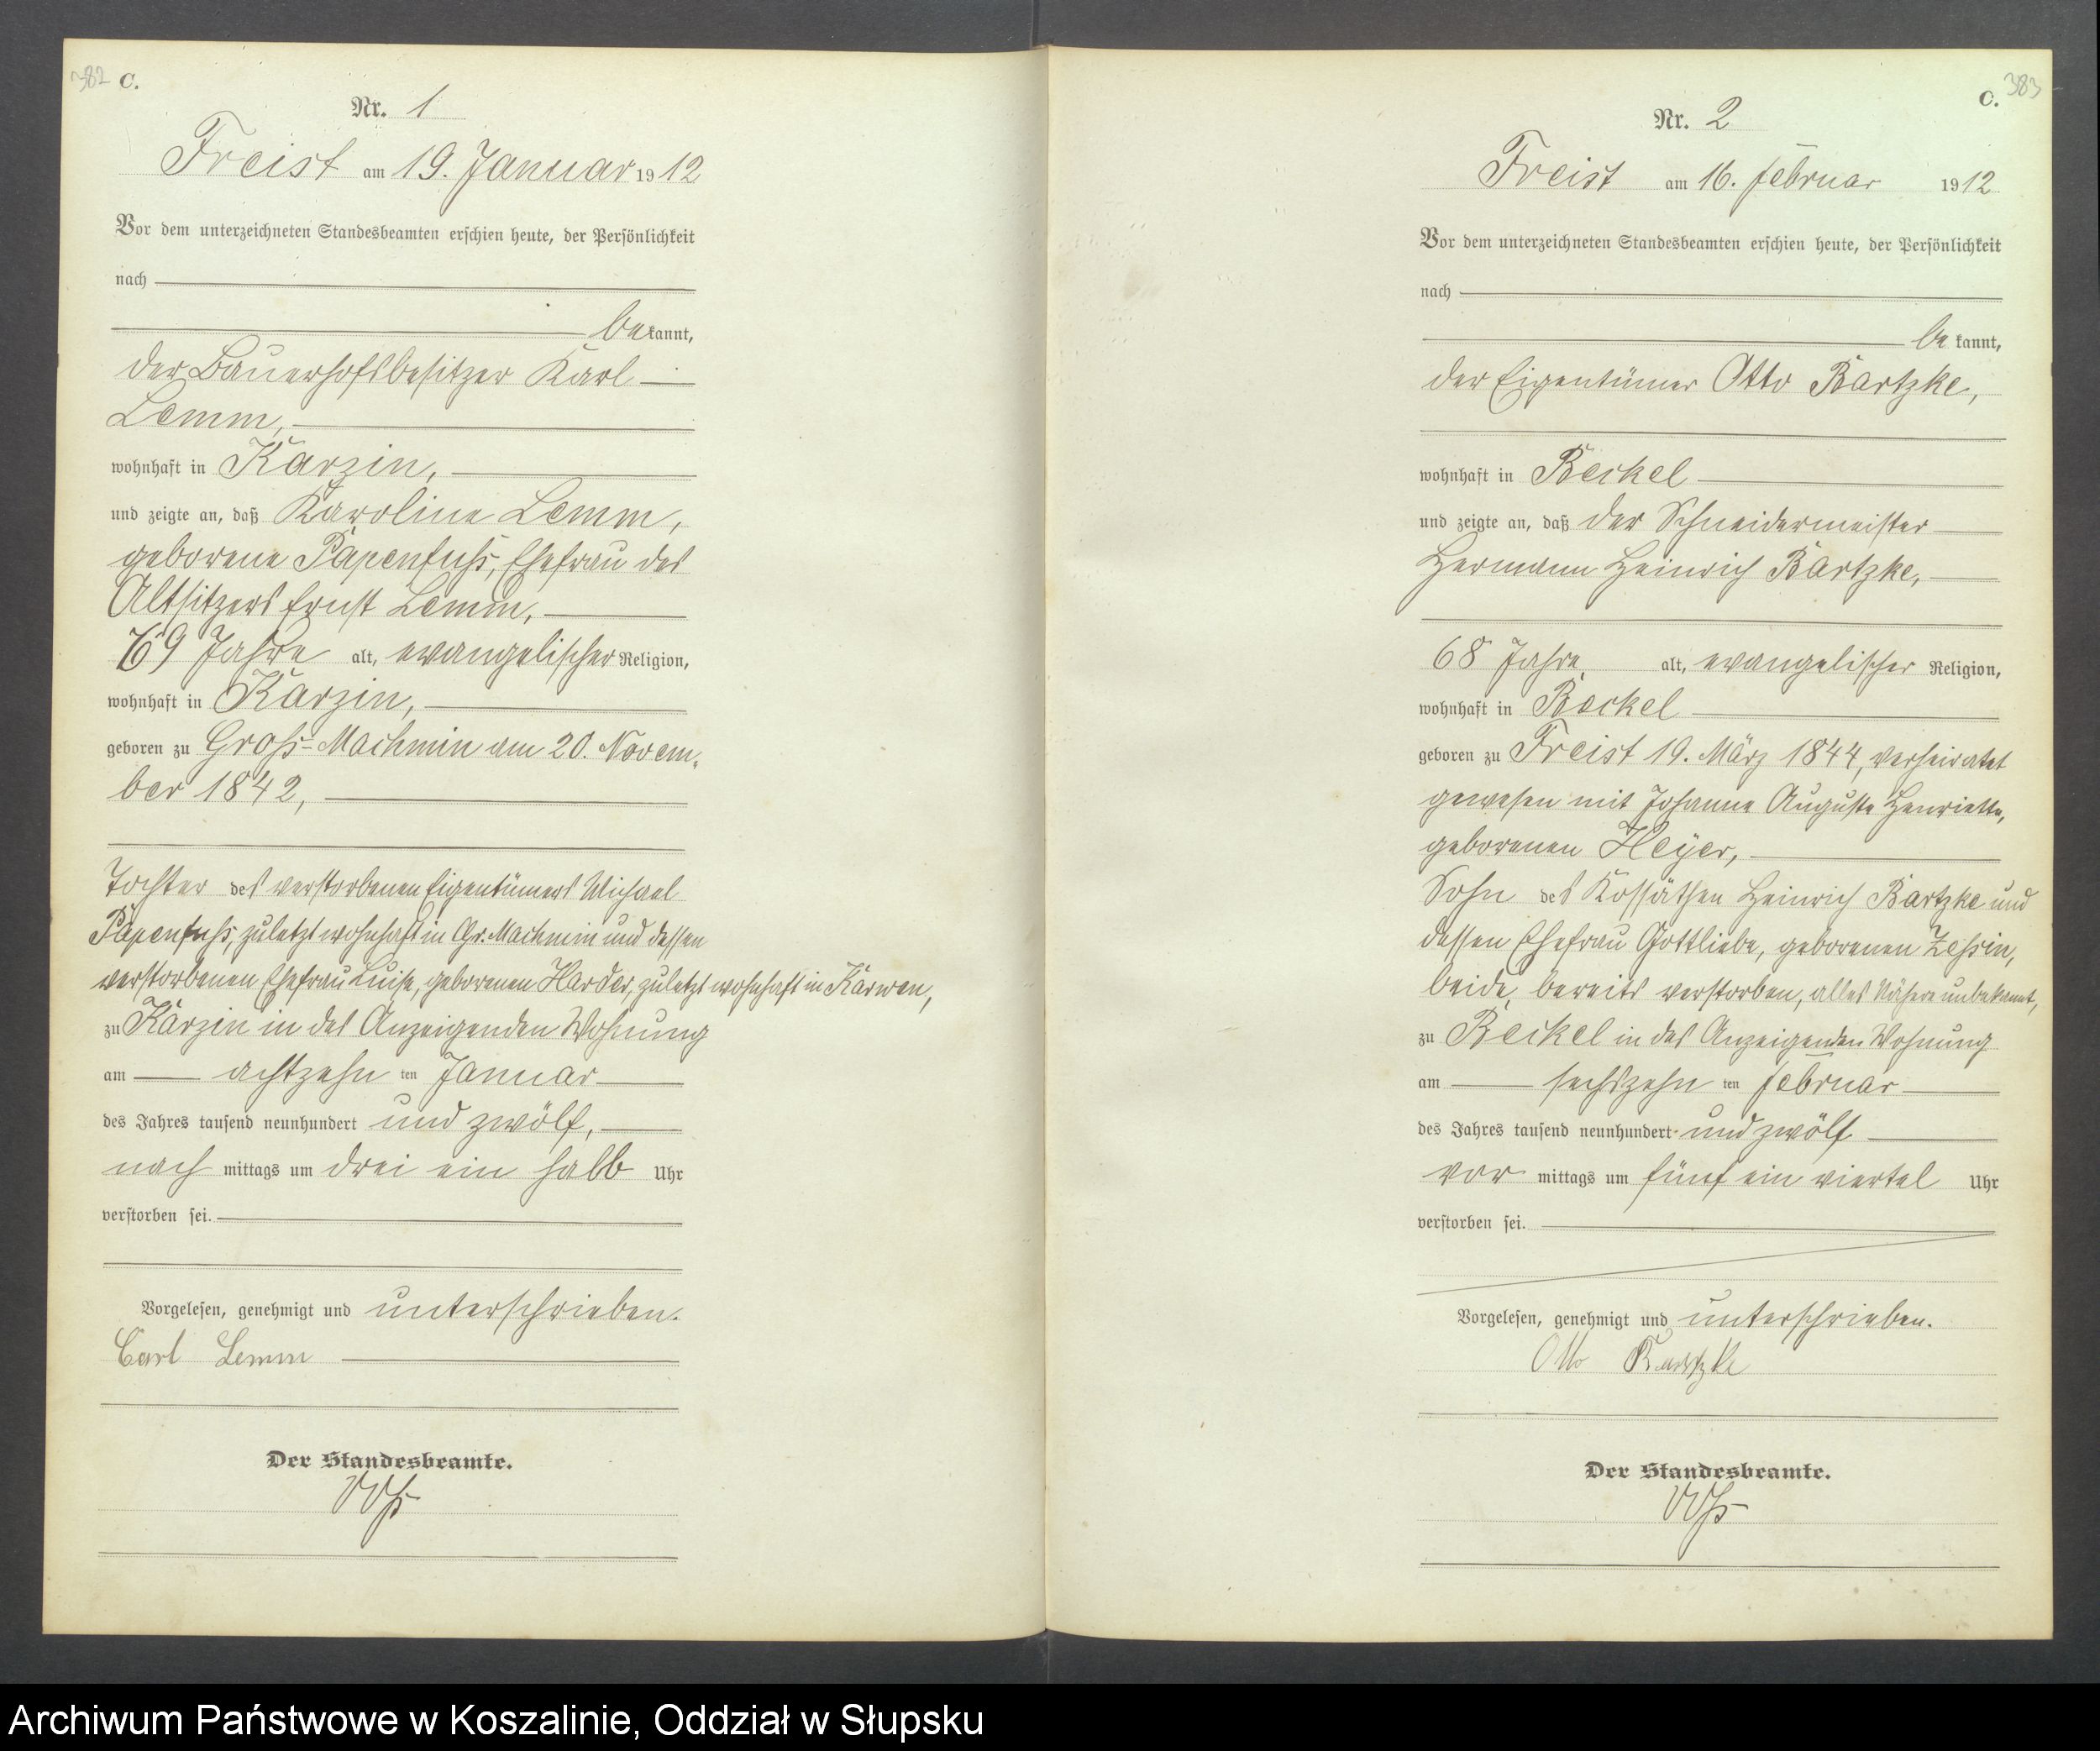 382 C.
Nr. 1
Freist am 19. Januar 1912
Vor dem unterzeichneten Standesbeamten erschien heute, der Persönlichkeit
nach
bekannt,
der Bauerhofsbesitzer Karl
Lemm,
wohnhaft in Karzin,
und zeigte an, daß Karoline Lemm,
geborene Papenfuß, Ehefrau des
Altsitzers Ernst Lemm,
69 Jahre alt, evangelischer Religion,
wohnhaft in Karzin,
geboren zu Groß-Machmin am 20. Novem-
ber 1842,
Tochter des verstorbenen Eigentümers Michael
Papenfuß, zuletzt wohnhaft in Gr. Machmin und dessen
verstorbenen Ehefrau Luise, geborenen Harder, zuletzt wohnhaft in Karwen,
zu Karzin in des Anzeigenden Wohnung
am achtzehn ten Januar
des Jahres tausend neunhundert und zwölf,
nach mittags um drei ein halb Uhr
verstorben sei.
Vorgelesen, genehmigt und unterschrieben.
Carl Lemm
Der Standesbeamte.
C. 383
Nr. 2
Freist am 16. Februar 1912
Vor dem unterzeichneten Standesbeamten erschien heute, der Persönlichkeit
nach
bekannt,
der Eigentümer Otto Bartzke,
wohnhaft in Beckel
und zeigte an, daß der Schneidermeister
Hermann Heinrich Bartzke,
68 Jahre alt, evangelischer Religion,
wohnhaft in Beckel
geboren zu Freist 19. März 1844, verheiratet
gewesen mit Johanne Auguste Henriette,
geborenen Heyer,
Sohn des Kossäthen Heinrich Bartzke und
dessen Ehefrau Gottliebe, geborenen
beide bereits verstorben, alles Nähere unbekannt,
zu Beckel in des Anzeigenden Wohnung
am sechszehn ten Februar
des Jahres tausend neunhundert und zwölf
vor mittags um fünf ein viertel Uhr
verstorben sei.
Vorgelesen, genehmigt und unterschrieben.
Otto Bartzke
Der Standesbeamte.
Archiwum Państwowe w Koszalinie, Oddział w Słupsku